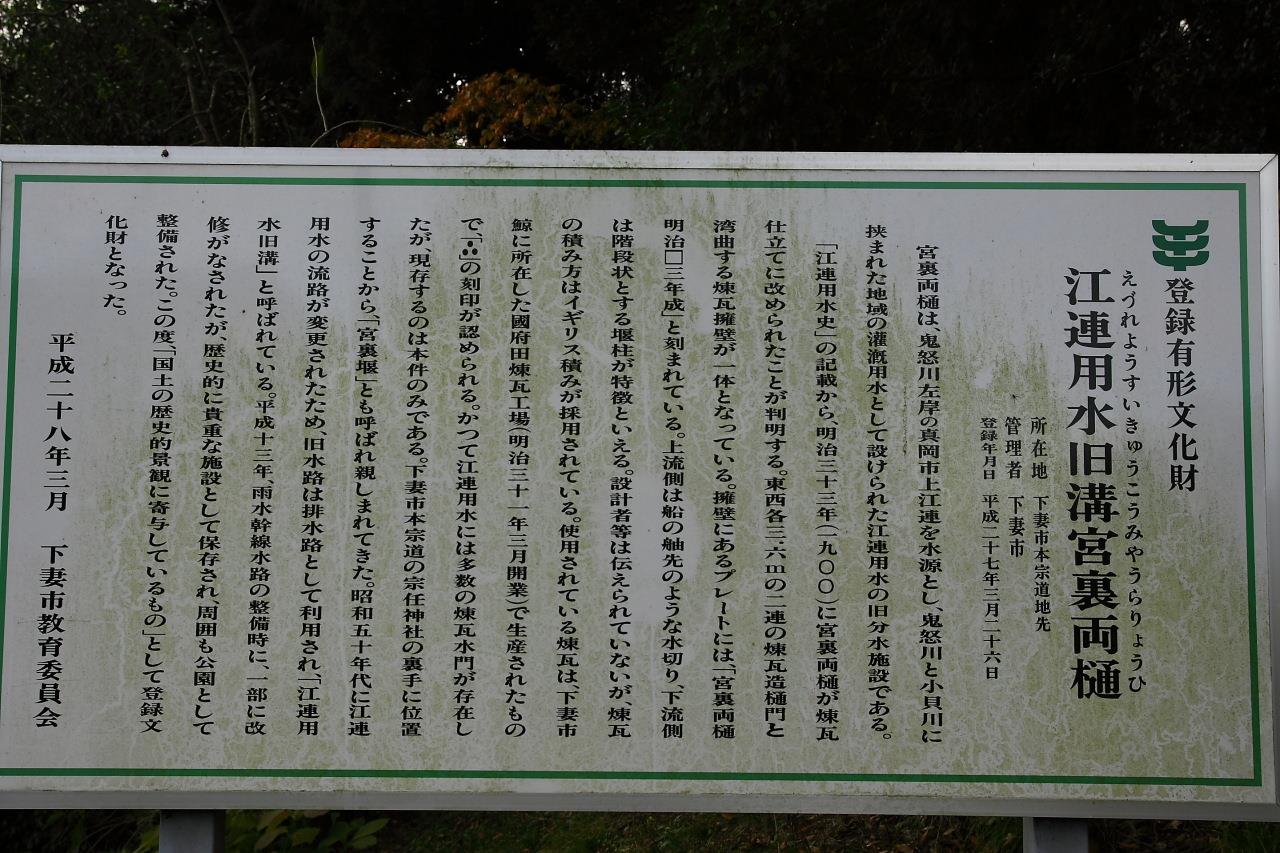 登録有形文化財
えづれようすいきゅうこうみやうらりょうひ
江連用水旧溝宮裏両樋
所在地 下妻市本宗道地先
管理者 下妻市
登録年月日 平成二十七年三月二十六日
宮裏両樋は、鬼怒川左岸の真岡市上江連を水源とし、鬼怒川と小貝川に
挟まれた地域の灌漑用水として設けられた江連用水の旧分水施設である。
「江連用水史」の記載から、明治三十三年(一九〇〇)に宮裏両樋が煉瓦
仕立てに改められたことが判明する。東西各三・六mの二連の煉瓦造樋門と
湾曲する煉瓦擁壁が一体となっている。擁壁にあるプレートには、「宮裏両樋
明治□三年成」と刻まれている。上流側は船の舳先のような水切り、下流側
は階段状とする堰柱が特徴といえる。設計者等は伝えられていないが、煉瓦
の積み方はイギリス積みが採用されている。使用されている煉瓦は、下妻市
鯨に所在した國府田煉瓦工場(明治三十一年三月開業)で生産されたもの
で、「∴」の刻印が認められる。かつて江連用水には多数の煉瓦水門が存在し
たが、現存するのは本件のみである。下妻市本宗道の宗任神社の裏手に位置
することから、「宮裏堰」とも呼ばれ親しまれてきた。昭和五十年代に江連
用水の流路が変更されたため、旧水路は排水路として利用され、「江連用
水旧溝」と呼ばれている。平成十三年、雨水幹線水路の整備時に、一部に改
修がなされたが、歴史的に貴重な施設として保存され、周囲も公園として
整備された。この度、「国土の歴史的景観に寄与しているもの」として登録文
化財となった。
平成二十八年三月 下妻市教育委員会